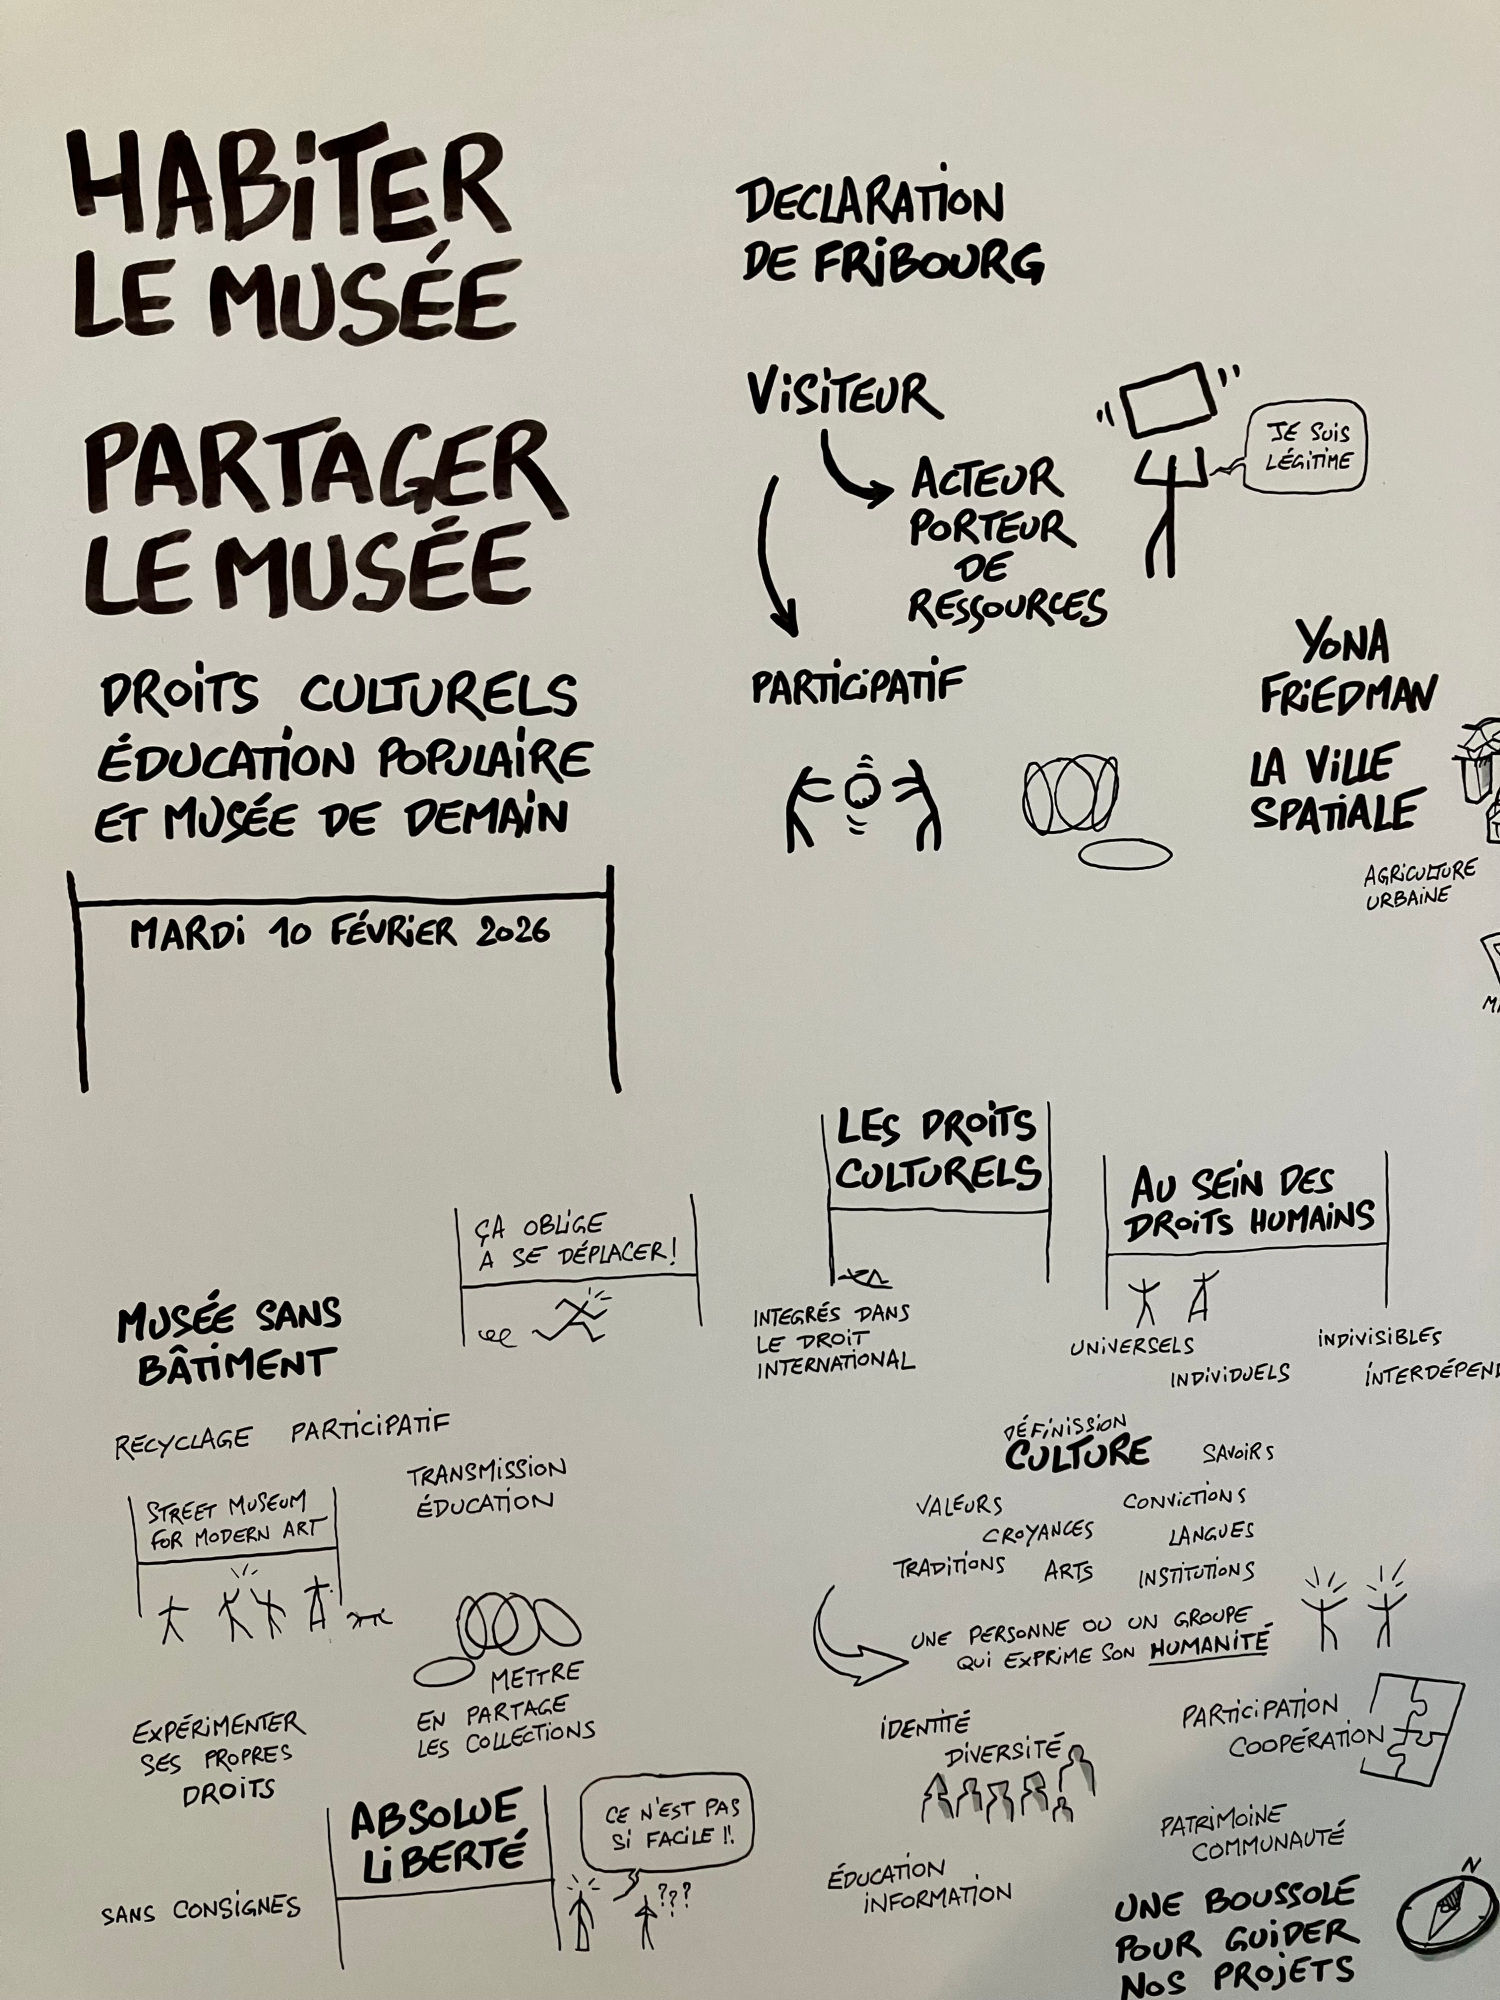 HABITER
LE MUSÉE
PARTAGER
LE MUSÉE
DROITS CULTURELS
ÉDUCATION POPULAIRE
ET MUSÉE DE DEMAIN
MARDI 10 FÉVRIER 2026
DECLARATION
DE FRIBOURG
VISITEUR
ACTEUR
PORTEUR
DE
RESSOURCES
JE SUIS
LÉGITIME
PARTICIPATIF
YONA
FRIEDMAN
LA VILLE
SPATIALE
AGRICULTURE
URBAINE
ÇA OBLIGE
A SE DÉPLACER !
MUSÉE SANS
BÂTIMENT
RECYCLAGE PARTICIPATIF
TRANSMISSION
ÉDUCATION
STREET MUSEUM
FOR MODERN ART
METTRE
EN PARTAGE
LES COLLECTIONS
EXPÉRIMENTER
SES PROPRES
DROITS
ABSOLUE
LIBERTÉ
CE N'EST PAS
SI FACILE !!
???
SANS CONSIGNES
LES DROITS
CULTURELS
INTEGRÉS DANS
LE DROIT
INTERNATIONAL
AU SEIN DES
DROITS HUMAINS
UNIVERSELS
INDIVIDUELS
INDIVISIBLES
INTERDÉPEND
DÉFINISSION
CULTURE
SAVOIRS
VALEURS
CONVICTIONS
CROYANCES
LANGUES
TRADITIONS
ARTS
INSTITUTIONS
UNE PERSONNE OU UN GROUPE
QUI EXPRIME SON HUMANITÉ
IDENTITÉ
DIVERSITÉ
PARTICIPATION
COOPÉRATION
PATRIMOINE
COMMUNAUTÉ
ÉDUCATION
INFORMATION
UNE BOUSSOLE
POUR GUIDER
NOS PROJETS
N